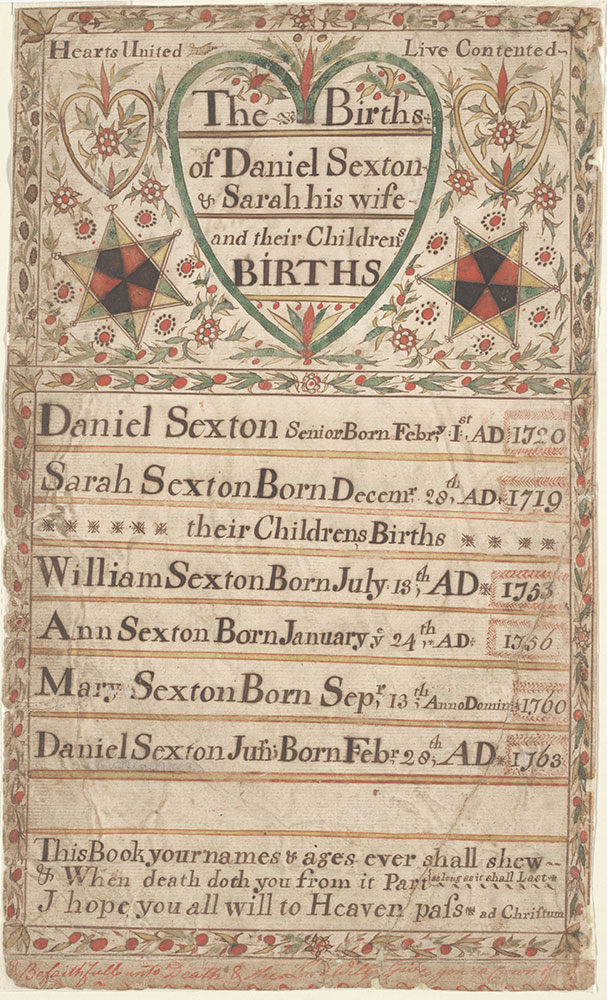 Hearts United
Live Contented
The Births
of Daniel Sexton
& Sarah his wife
and their Childrens
BIRTHS
Daniel Sexton Senior Born Febry. 1st, AD 1720
Sarah Sexton Born Decemr. 28th, AD. 1719
their Childrens Births
William Sexton Born July 13th, AD 1753
Ann Sexton Born January ye 24th, AD: 1756
Mary Sexton Born Sepr, 13th, Anno Domini 1760
Daniel Sexton Junr: Born Febr. 28th, AD 1763
This Book your names & ages ever shall shew
& When death doth you from it Part as long as it shall Last
J hope you all will to Heaven paſs ad Chriſtum
Be faithfull unto Death & the Lord will Give you a Crown of